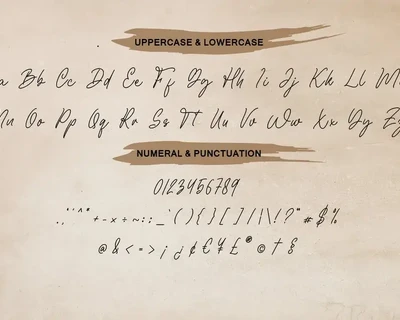 UPPERCASE & LOWERCASE
a Bb Cc Dd Ee Ff Gg Hh Ii Jj Kk Ll M
Nn Oo Pp Qq Rr Ss Tt Uu Vv Ww Xx Yy Zz
NUMERAL & PUNCTUATION
0123456789
.,¨^°+-×÷~:;_`(){}[]/|\!?"#$%
@&<=>¡¿¢€¥£®©†§